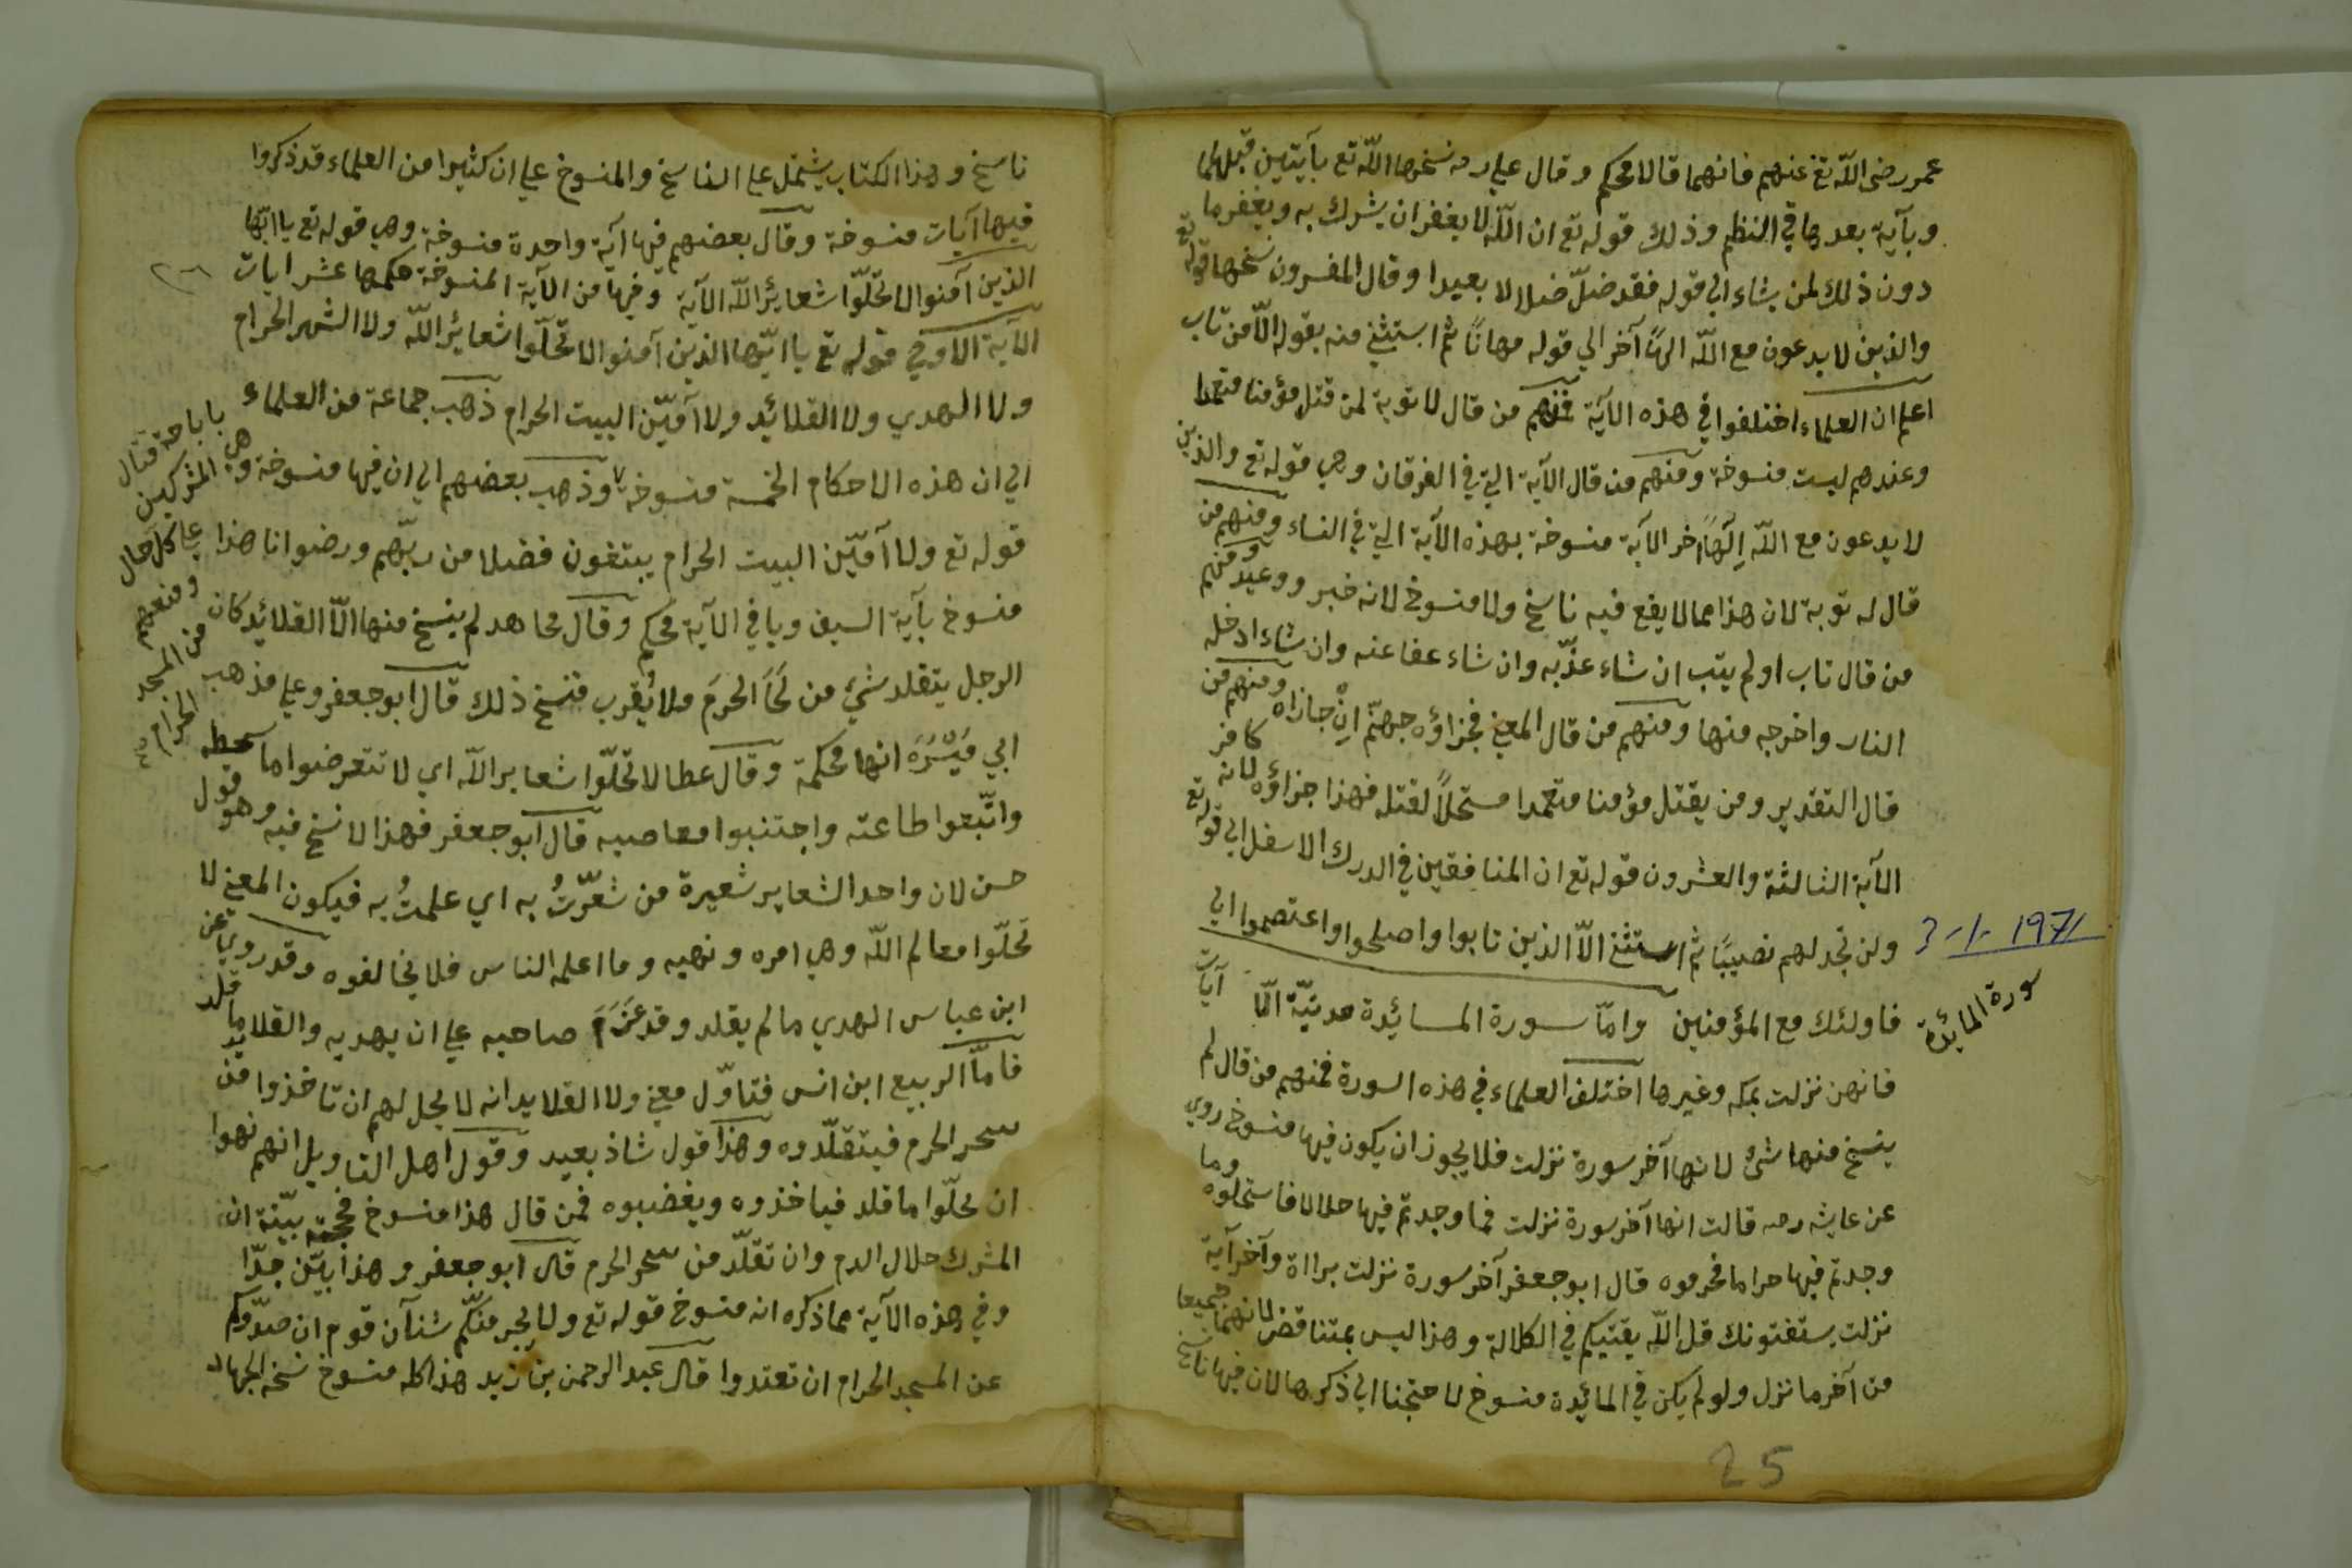 عمر رضي اللّه تع عنهم فانهما قالا محكم وقال علي رضه نسخها اللّه تع بآيتين قبلها
وبآية بعدها في النظم وذلك قوله تع ان اللّه لا يغفر ان يشرك به ويغفر ما
دون ذلك لمن يشاء الي قوله فقد ضلّ ضلالا بعيدا وقال المفسرون نسخها قوله تع
والذين لا يدعون مع اللّه الهًا آخر الي قوله مهانًا ثم استثني منه بقوله الّا من تاب
اعلم ان العلماء اختلفوا في هذه الآية فمنهم من قال لا توبة لمن قتل مؤمنا متعمدا
وعندهم ليست منسوخة ومنهم من قال الآية التي في الفرقان وهي قوله تع والذين
لا يدعون مع اللّه اِلٓهًا آخر الآية منسوخة بهذه الآية التي في النساء ومنهم من
قال له توبة لان هذا مما لا يقع فيه ناسخ ولا منسوخ لانه خبر ووعيد ومنهم
من قال تاب او لم يتب ان شاء عذّبه وان شاء عفا عنه وان شاء ادخله
النار واخرجه منها ومنهم من قال المعني فجزاؤه جهنّم اِنْ جازاه ومنهم من
قال التقدير ومن يقتل مؤمنا متعمدا مستحلاً لقتله فهذا جزاؤه لانه كافر
الآية الثالثة والعشرون قوله تع ان المنافقين في الدرك الاسفل الي قوله تع
ولن تجد لهم نصيبًا ثم استثني الّا الذين تابوا واصلحوا واعتصموا الي
3-1-1971
فاولئك مع المؤمنين وامّا سورة المائدة مدنيّة الّا آيات
سورة المائدة
فانهن نزلت بمكه وغيرها اختلف العلماء في هذه السورة فمنهم من قال لم
ينسخ منها شئ لانها آخر سورة نزلت فلا يجوز ان يكون فيها منسوخ روي
عن عايشه رضه قالت انها آخر سورة نزلت فما وجدتم فيها حلالا فاستحلوه وما
وجدتم فيها حراما فحرموه قال ابو جعفر آخر سورة نزلت براءة وآخر آية
نزلت يستفتونك قل اللّه يفتيكم في الكلالة وهذا ليس بمتناقض لانهما جميعا
من آخر ما نزل ولو لم يكن في المائدة منسوخ لاحتجنا الي ذكرها لان فيها ناسخ
25
ناسخ وهذا الكتاب يشتمل علي الناسخ والمنسوخ علي ان كثيرا من العلماء قد ذكروا
فيها آيات منسوخة وقال بعضهم فيها آية واحدة منسوخة وهي قوله تع يا ايّها
الذين آمنوا لا تحلّوا شعائر اللّه الآية وفيها من الآية المنسوخة حكمها عشر ايات
٢٦
الآية الاولي قوله تع يا ايّها الذين آمنوا لا تحلّوا شعائر اللّه ولا الشهر الحرام
ولا الهدي ولا القلائد ولا آمّين البيت الحرام ذهب جماعة من العلماء
الي ان هذه الاحكام الخمسة منسوخة وذهب بعضهم الي ان فيها منسوخة وهي
قوله تع ولا آمّين البيت الحرام يبتغون فضلا من ربّهم ورضوانا هذا
منسوخ بآية السيف وباقي الآية محكم وقال مجاهد لم ينسخ منها الّا القلائد كان
الرجل يتقلد شئ من لحَاَ الحرَم ولا يُقرب فنسخ ذلك قال ابو جعفر وعلي مذهب
باباحة قتال
المشركين
علي كل حال
ومنعهم
من المسجد
الحرام
ابي مَيْسَرَه انها محكمة وقال عطا لا تحلّوا شعاير اللّه اي لا تتعرضوا ما سخطه
واتّبعوا طاعته واجتنبوا معاصيه قال ابو جعفر فهذا لا نسخ فيه وهو قول
حسن لان واحد الشعاير شعيرة من شعَرْتُ به اي علمتُ به فيكون المعني لا
تحلّوا معالم اللّه وهي امره ونهيه وما اعلمه الناس فلا يخالفوه وقد روي عن
ابن عباس الهدي ما لم يقلد وقد عَزَمَ صاحبه علي ان يهديه والقلايد ما قلد
فامّا الربيع ابن انس فتاوّل معني ولا القلايد انه لا يحل لهم ان تاخذوا من
سحر الحرم فيتقلّدوه وهذا قول شاذ بعيد وقول اهل التاويل انهم نهوا
ان يحلّوا ما قلد فياخذوه ويغضبوه فمن قال هذا منسوخ فحجته بيّنة ان
المشرك حلال الدم وان تقلّد من سحر الحرم قال ابو جعفر وهذا بيّن جدّا
وفي هذه الآية مما ذكره انه منسوخ قوله تع ولا يجرمنّكم شنآن قوم ان صدّوكم
عن المسجد الحرام ان تعتدوا قال عبد الرحمن بن زيد هذا كله منسوخ نسخه الجهاد